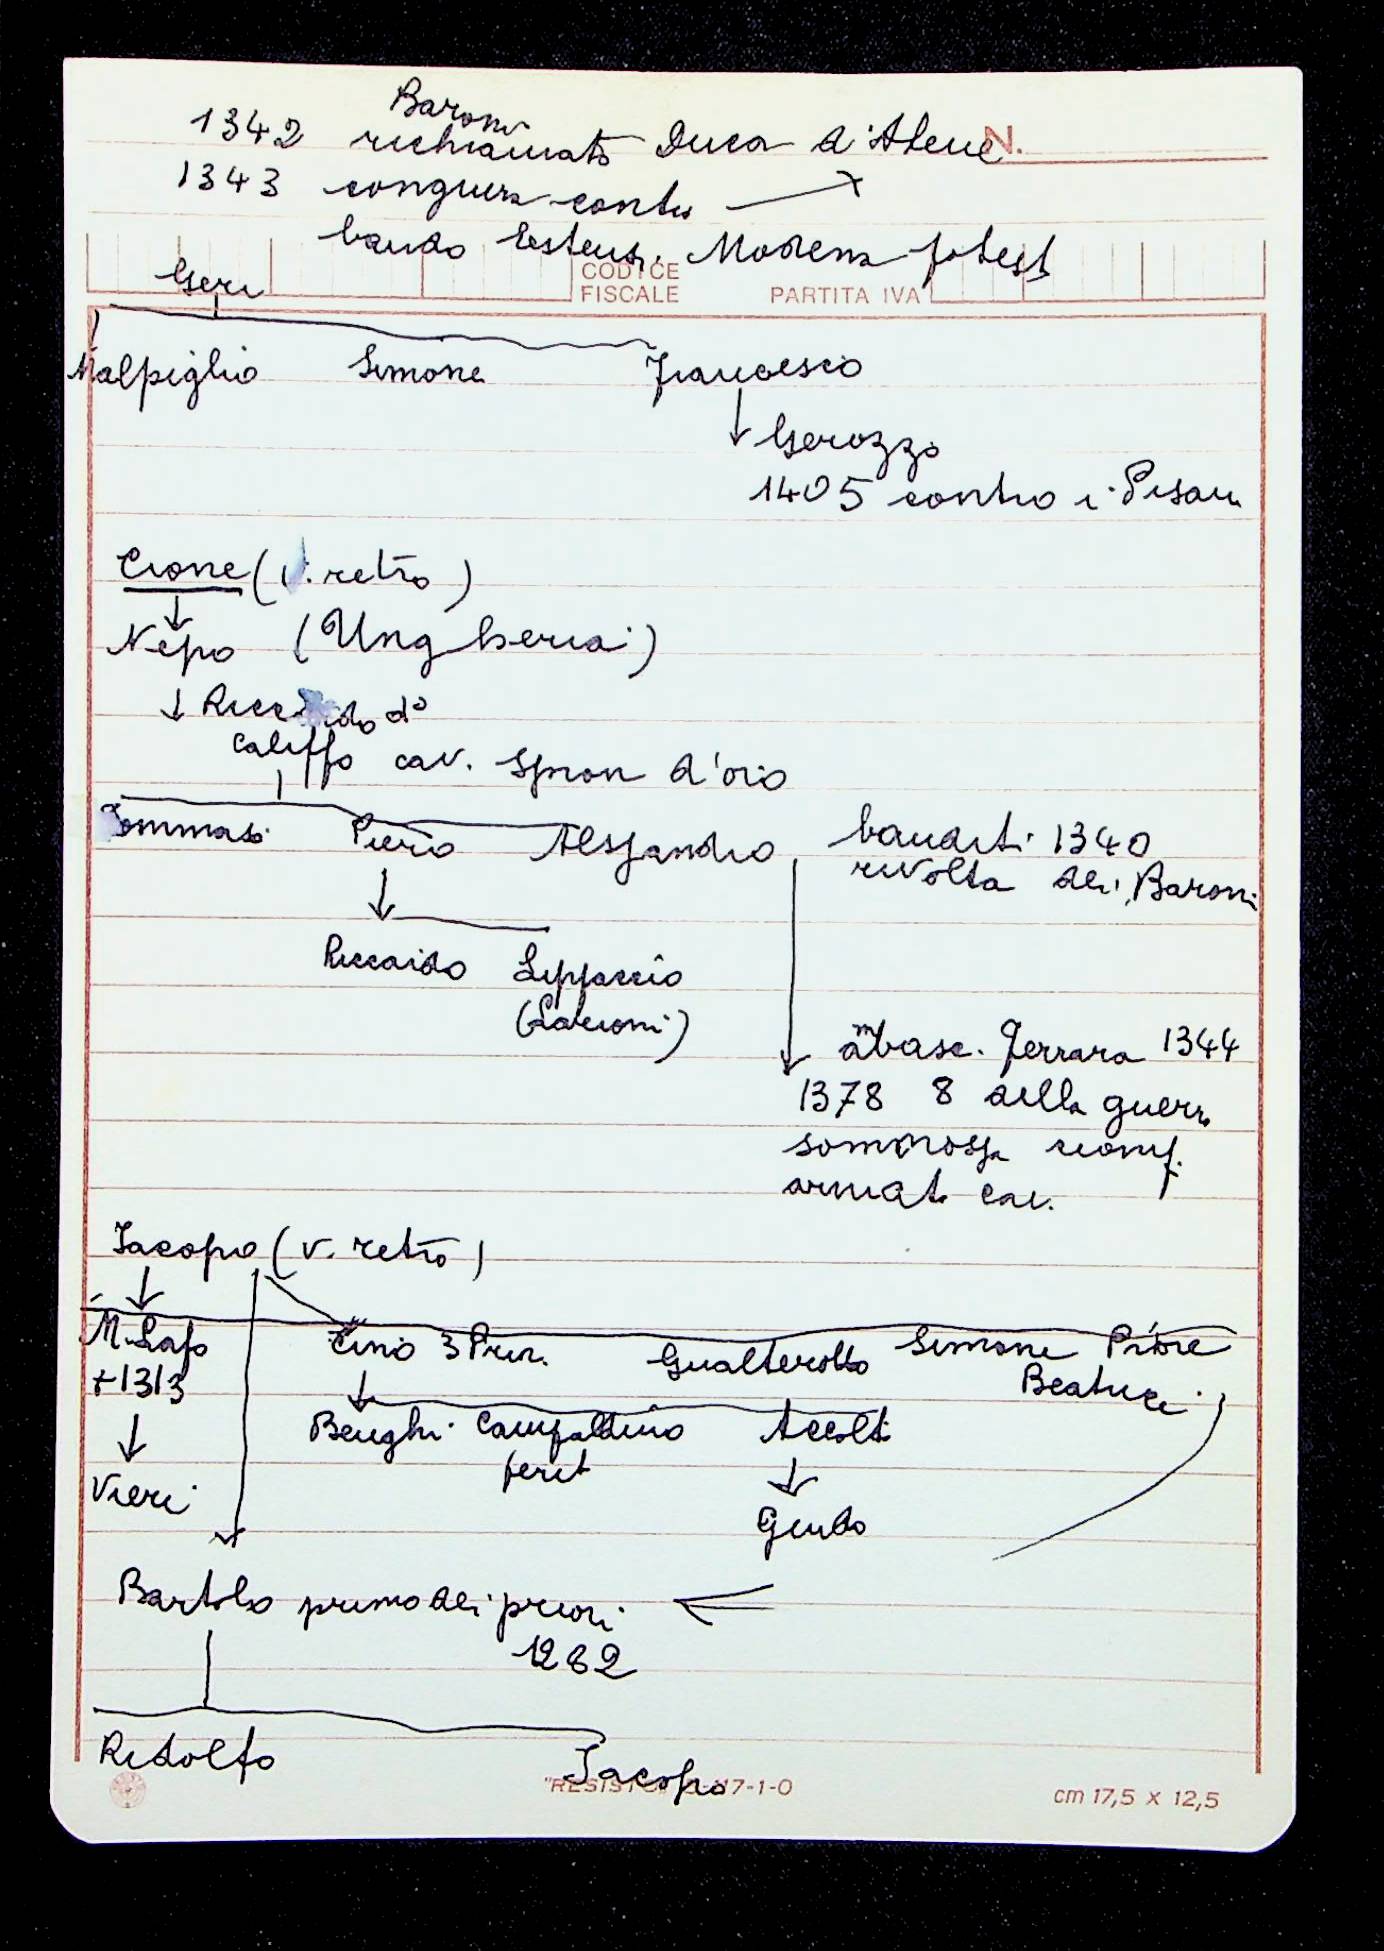 Baroni
1342 richiamato Duca d'Atene N.
1343 congiura contro
bando Estensi. Modena potest
CODICE
FISCALE PARTITA IVA
Geri
Malpiglio Simone Francesco
Gerozzo
1405 contro i Pisani
Cione (v. retro)
Nepo (Ungheria)
Riccardo d°
Califfo cav. Spron d'oro
Tommaso Piero Alessandro banditi 1340
rivolta dei Baroni
Riccardo Lippaccio
(Latroni)
ambasc. Ferrara 1344
1378 8 della guerra
sommossa ciompi
armato cav.
Jacopo (v. retro)
M. Lapo Cino 3 Prior. Gualterotto Simone Priore
+1313 Beatrice
Benghi Campaldino Accolti
ferit
Vieri Guido
Bartolo primo dei priori
1282
Ridolfo Jacopo
"RESISTO" 17-1-0 cm 17,5 x 12,5